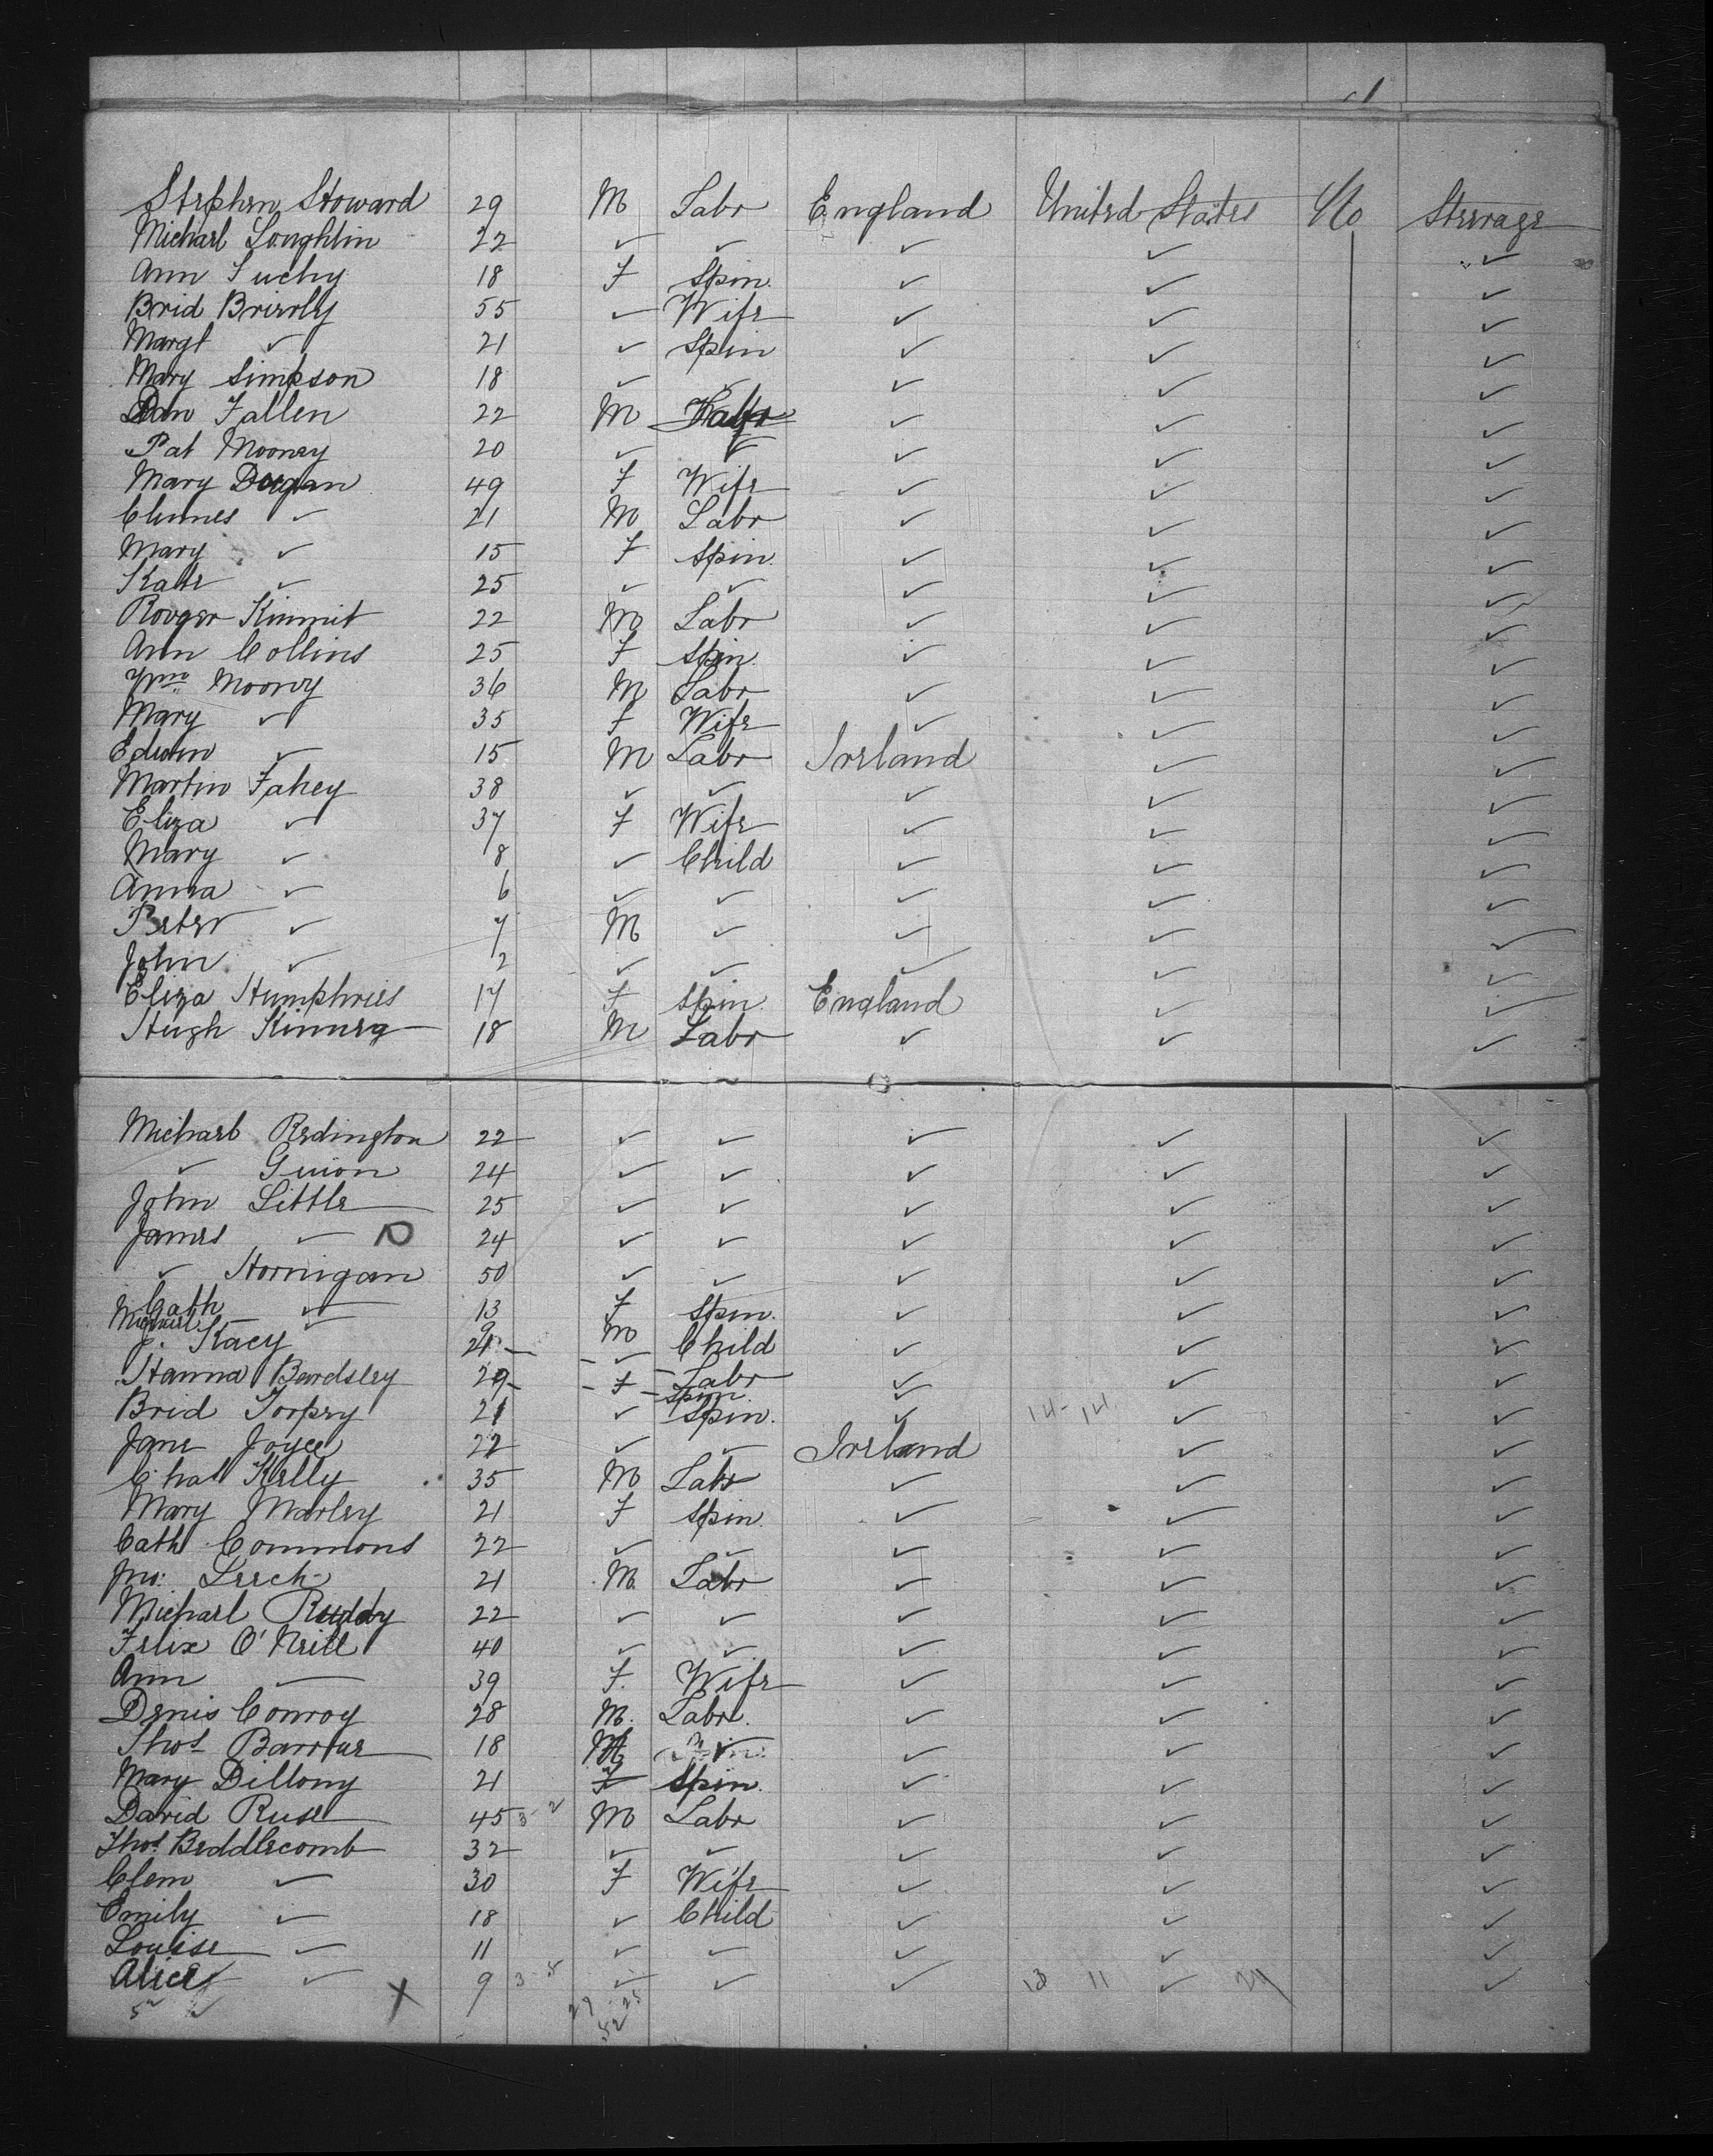 Stephen Howard 29 M Labr England United States No Steerage
Michael Loughlin 22 ✓ ✓ ✓ ✓ ✓
Ann 18 F Spin. ✓ ✓ ✓
Brid Brierly 55 ✓ Wife ✓ ✓ ✓
Margt ✓ 21 ✓ Spin ✓ ✓ ✓
Mary Simpson 18 ✓ ✓ ✓ ✓ ✓
Dan Fallen 22 M Labr ✓ ✓ ✓
Pat Mooney 20 ✓ ✓ ✓ ✓ ✓
Mary Dugan 49 F Wife ✓ ✓ ✓
✓ 21 M Labr ✓ ✓ ✓
Mary ✓ 15 F Spin. ✓ ✓ ✓
Kate ✓ 25 ✓ ✓ ✓ ✓ ✓
Rodger Kimmit 22 M Labr ✓ ✓ ✓
Ann Collins 25 F Spin. ✓ ✓ ✓
Wm Mooney 36 M Labr ✓ ✓ ✓
Mary ✓ 35 F Wife ✓ ✓ ✓
Edwin ✓ 15 M Labr Ireland ✓ ✓
Martin Fahey 38 ✓ ✓ ✓ ✓ ✓
Eliza ✓ 37 F Wife ✓ ✓ ✓
Mary ✓ 8 ✓ Child ✓ ✓ ✓
Anna ✓ 6 ✓ ✓ ✓ ✓ ✓
Peter ✓ 7 M ✓ ✓ ✓ ✓
John ✓ 2 ✓ ✓ ✓ ✓ ✓
Eliza Humphries 17 F Spin. England ✓ ✓
Hugh 18 M Labr ✓ ✓ ✓
Michael Redington 22 ✓ ✓ ✓ ✓ ✓
✓ Guion 24 ✓ ✓ ✓ ✓ ✓
John Little 25 ✓ ✓ ✓ ✓ ✓
James ✓ 24 ✓ ✓ ✓ ✓ ✓
✓ Hornigan 50 ✓ ✓ ✓ ✓ ✓
Cath ✓ 13 F Spin. ✓ ✓ ✓
Michael ✓ 9 M Child ✓ ✓ ✓
J. Kacy 21 ✓ Labr ✓ ✓ ✓
Hanna Bardsley 29 F Spin ✓
Brid Torpey 21 ✓ Spin. ✓ 14-14 ✓ ✓
Jane Joyce 22 ✓ ✓ Ireland ✓ ✓
Chas Kelly 35 M Labr ✓ ✓ ✓
Mary Marley 21 F Spin. ✓ ✓ ✓
Cath Commons 22 ✓ ✓ ✓ ✓ ✓
Jno: Leech 21 M. Labr ✓ ✓ ✓
Michael Ruddy 22 ✓ ✓ ✓ ✓ ✓
Felix O'Neill 40 ✓ ✓ ✓ ✓ ✓
Ann — 39 F. Wife ✓ ✓ ✓
Denis Conroy 28 M. Labr. ✓ ✓ ✓
Thos 18 M ✓ ✓ ✓ ✓
Mary Dillony 21 F Spin. ✓ ✓ ✓
David Ruse 45 M Labr ✓ ✓ ✓
Thos Beddlecomb 32 ✓ ✓ ✓ ✓ ✓
Clem ✓ 30 F Wife ✓ ✓ ✓
Emily ✓ 18 ✓ Child ✓ ✓ ✓
Louise ✓ 11 ✓ ✓ ✓ ✓ ✓
Alice ✓ 9 ✓ ✓ ✓ 13 11 ✓ ✓
X 29 25
52